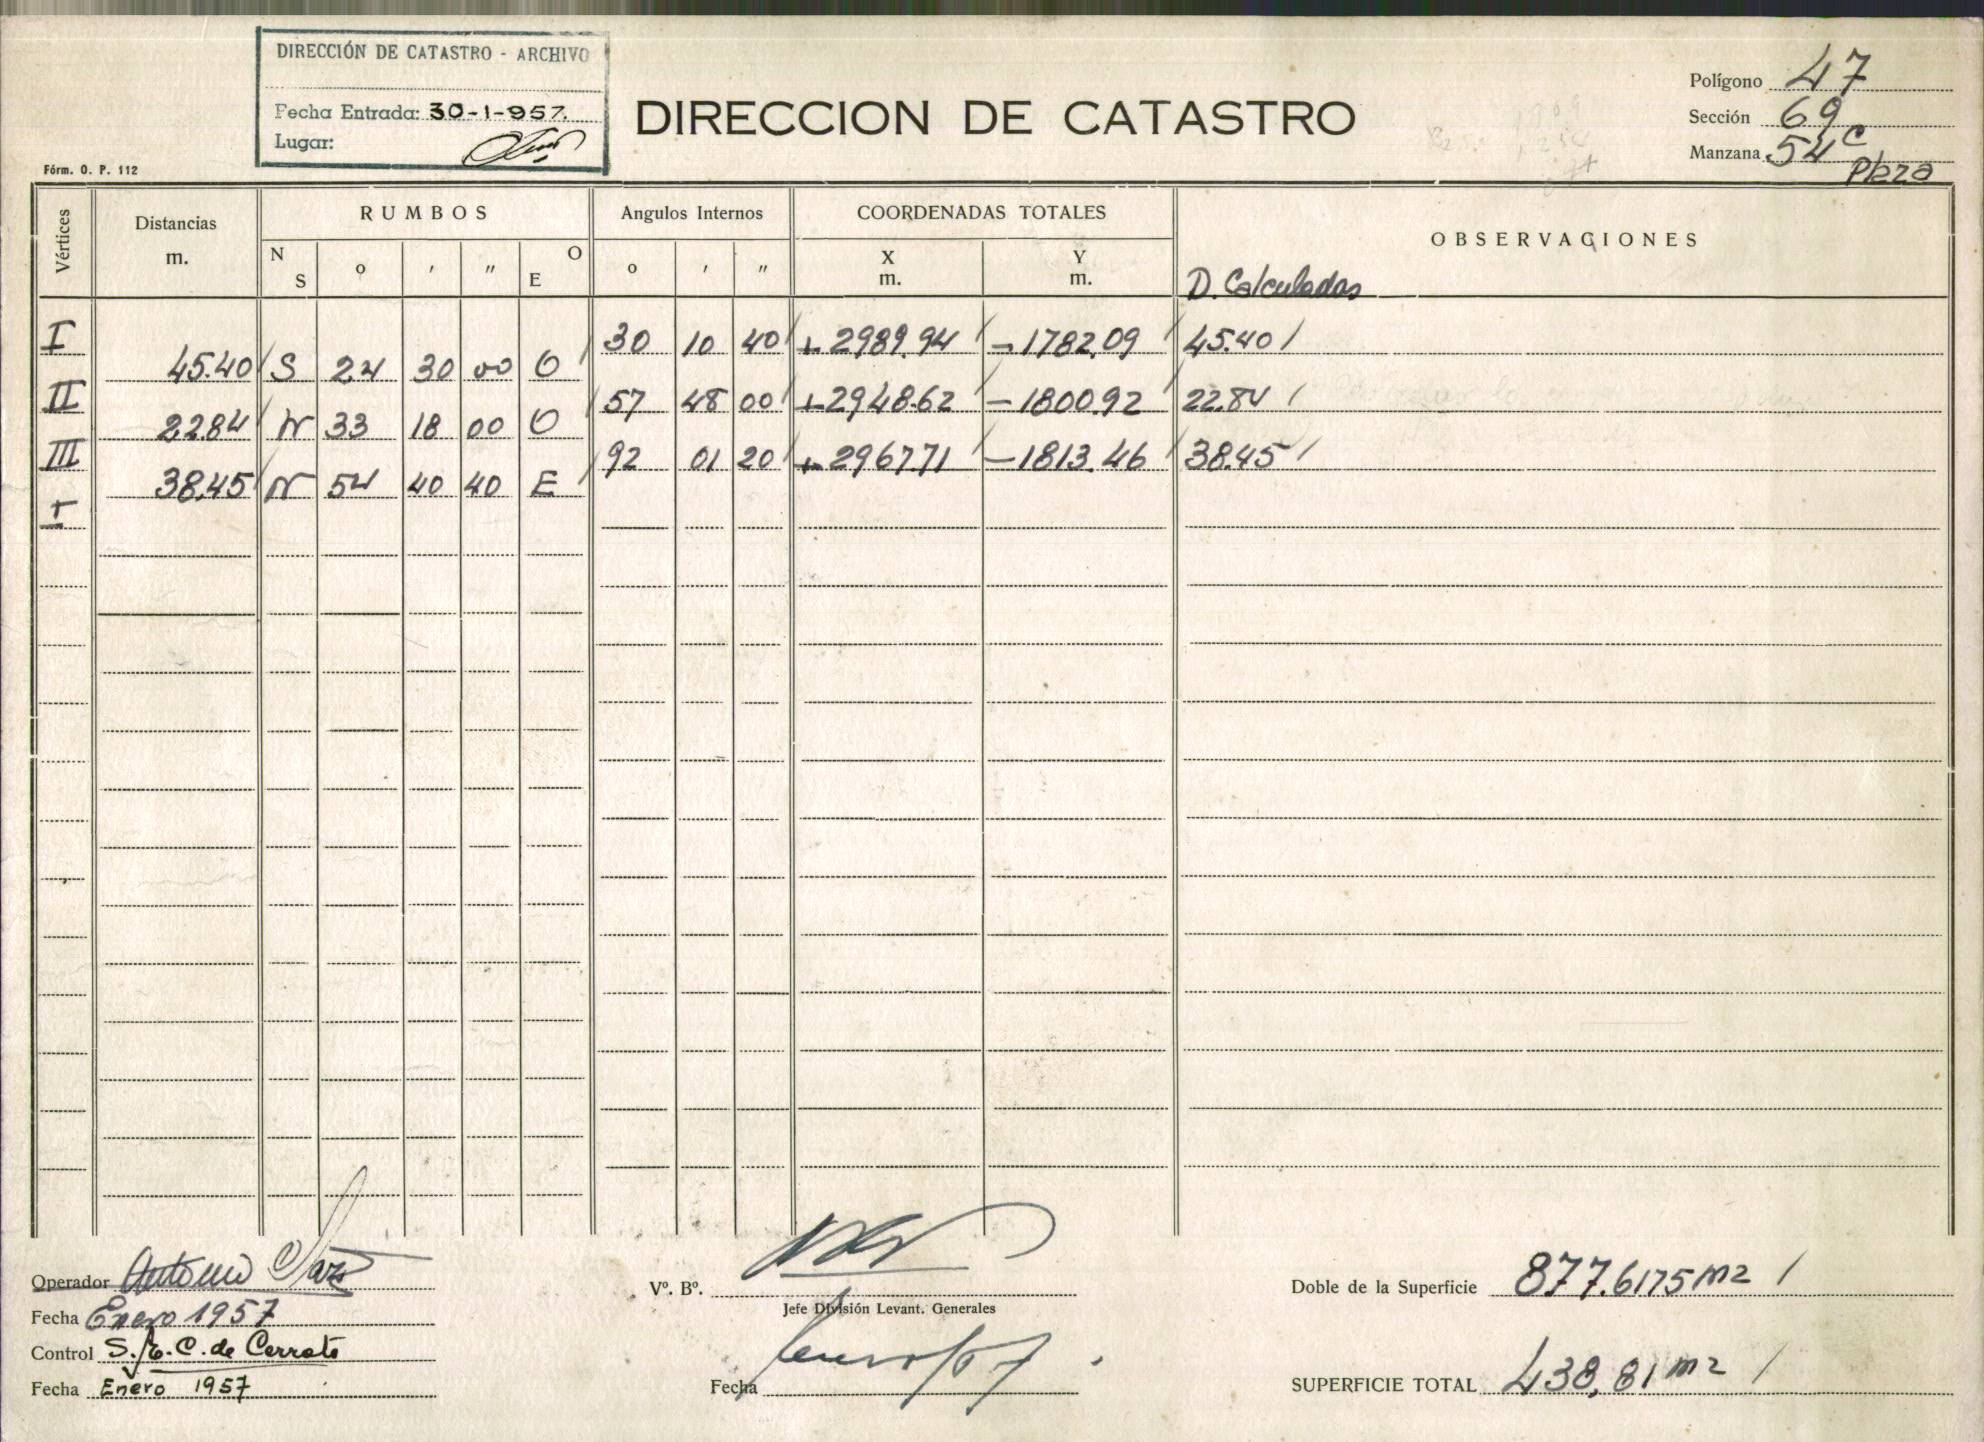 DIRECCIÓN DE CATASTRO - ARCHIVO
Fecha Entrada: 30-1-957.
Lugar:
Fórm. O. P. 112
DIRECCION DE CATASTRO
Polígono 47
Sección 69
Manzana 54 C
Plaza
Vértices
Distancias
m.
RUMBOS
N
S
o
'
"
O
E
Angulos Internos
o
'
"
COORDENADAS TOTALES
X
m.
Y
m.
OBSERVACIONES
D. Calculadas
I 30 10 40 +2989.94 -1782.09 45.40
45.40 S 24 30 00 O
II 57 48 00 +2948.62 -1800.92 22.84
22.84 N 33 18 00 O
III 92 01 20 +2967.71 -1813.46 38.45
38.45 N 54 40 40 E
I
Operador Antonio
Fecha Enero 1957
Control S. E. C. de Cerrato
Fecha Enero 1957
Vº. Bº.
Jefe División Levant. Generales
Fecha
Doble de la Superficie 877.6175 m2
SUPERFICIE TOTAL 438,81 m2